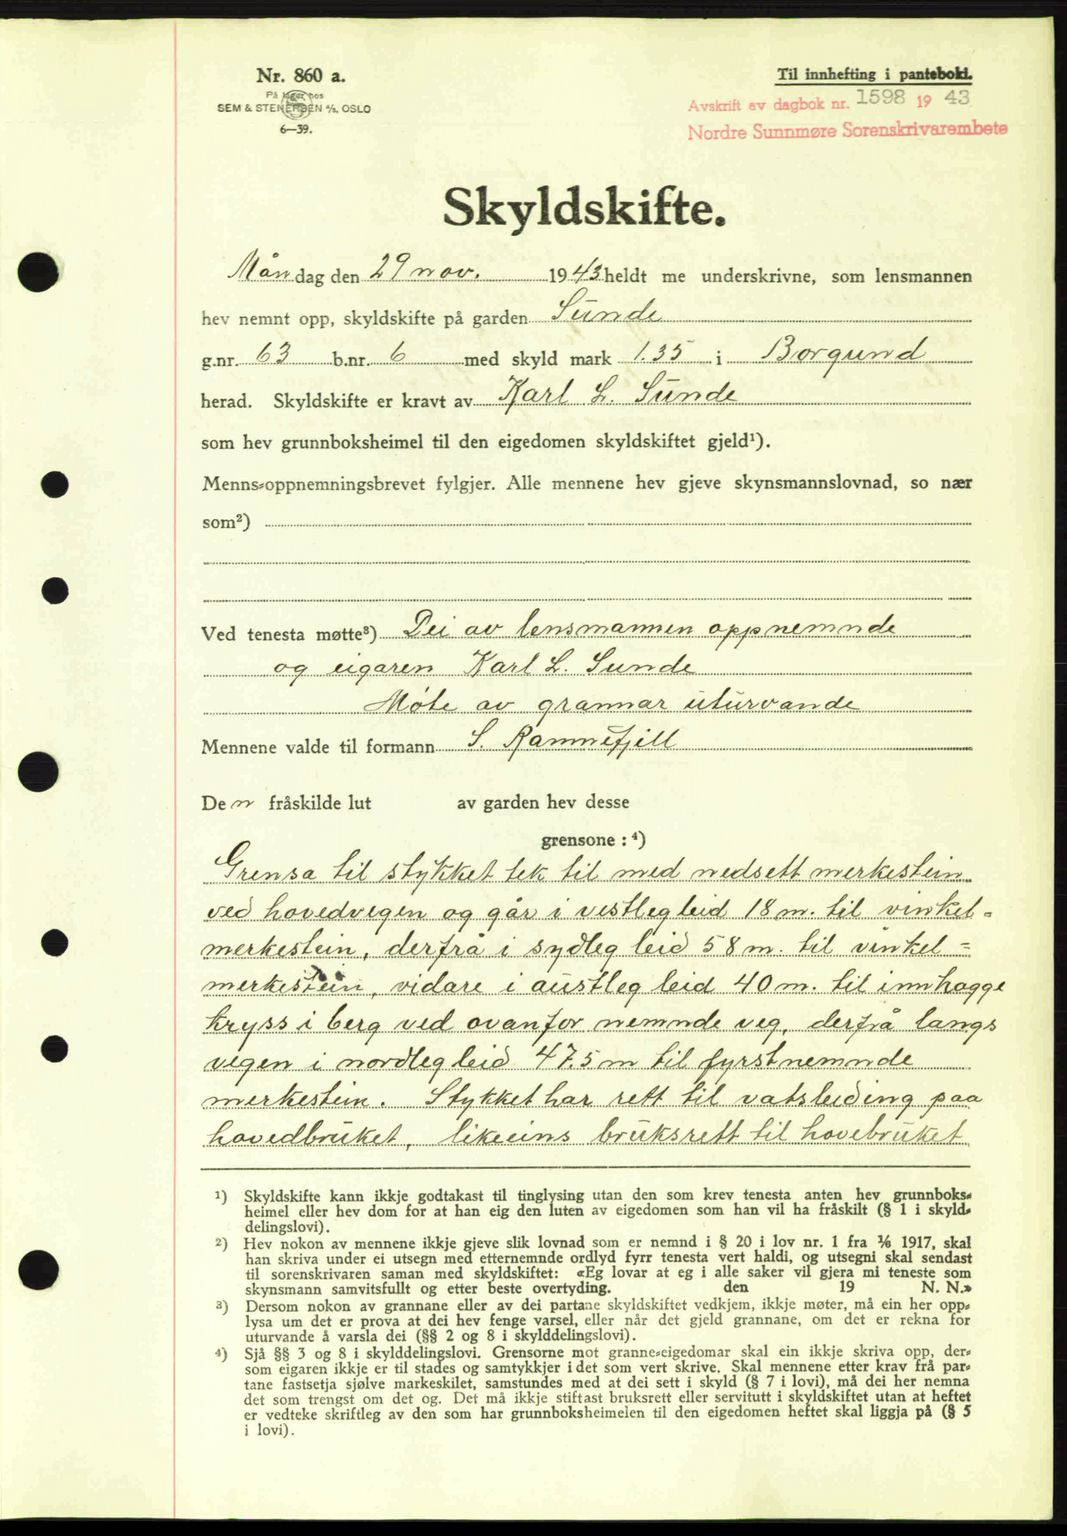 Nr. 860 a.
På lager hos
SEM & STENERSEN A/S, OSLO
6—39.
Til innhefting i pantebok.
Avskrift av dagbok nr. 1598 19 43
Nordre Sunnmøre Sorenskrivarembete
Skyldskifte.
Måndag den 29 nov. 1943 heldt me underskrivne, som lensmannen
hev nemnt opp, skyldskifte på garden Sunde
g.nr. 63 b.nr. 6 med skyld mark 1.35 i Borgund
herad. Skyldskifte er kravt av Karl L. Sunde
som hev grunnboksheimel til den eigedomen skyldskiftet gjeld¹).
Menns-oppnemningsbrevet fylgjer. Alle mennene hev gjeve skynsmannslovnad, so nær
som²)
Ved tenesta møtte³) Dei av lensmannen oppnemnde
og eigaren Karl L. Sunde
Møte av grannar uturvande
Mennene valde til formann S. Ramnefjell
De n fråskilde lut av garden hev desse
grensone : ⁴)
Grensa til stykket tek til med nedsett merkestein
ved hovedvegen og går i vestleg leid 18 m. til vinkel-
merkestein, derfrå i sydleg leid 58 m. til vinkel=
merkestein, vidare i austleg leid 40 m. til innhogge
kryss i berg ved ovanfor nemnde veg, derfrå langs
vegen i nordleg leid 47.5 m til fyrstnemnde
merkestein. Stykket har rett til vatsleiding paa
hovedbruket, likeeins bruksrett til hovebruket
¹) Skyldskifte kann ikkje godtakast til tinglysing utan den som krev tenesta anten hev grunnboks-
heimel eller hev dom for at han eig den luten av eigedomen som han vil ha fråskilt (§ 1 i skyld-
delingslovi).
²) Hev nokon av mennene ikkje gjeve slik lovnad som er nemnd i § 20 i lov nr. 1 fra 1/6 1917, skal
han skriva under ei utsegn med etternemnde ordlyd fyrr tenesta vert haldi, og utsegni skal sendast
til sorenskrivaren saman med skyldskiftet: «Eg lovar at eg i alle saker vil gjera mi teneste som
skynsmann samvitsfullt og etter beste overtyding. den 19 N. N.»
³) Dersom nokon av grannane eller av dei partane skyldskiftet vedkjem, ikkje møter, må ein her opp-
lysa um det er prova at dei hev fenge varsel, eller når det gjeld grannane, om det er rekna for
uturvande å varsla dei (§§ 2 og 8 i skylddelingslovi).
⁴) Sjå §§ 3 og 8 i skylddelingslovi. Grensorne mot granne-eigedomar skal ein ikkje skriva opp, der-
som eigaren ikkje er til stades og samtykkjer i det som vert skrive. Skal mennene etter krav frå par-
tane fastsetja sjølve markeskilet, samstundes med at dei sett i skyld (§ 7 i lovi), må dei her nemna
det som trengst om det og. Det må ikkje stiftast bruksrett eller servitutt i skyldskiftet utan at heftet
er vedteke skriftleg av den som har grunnboksheimelen til den eigedomen heftet skal liggja på (§ 5
i lovi).